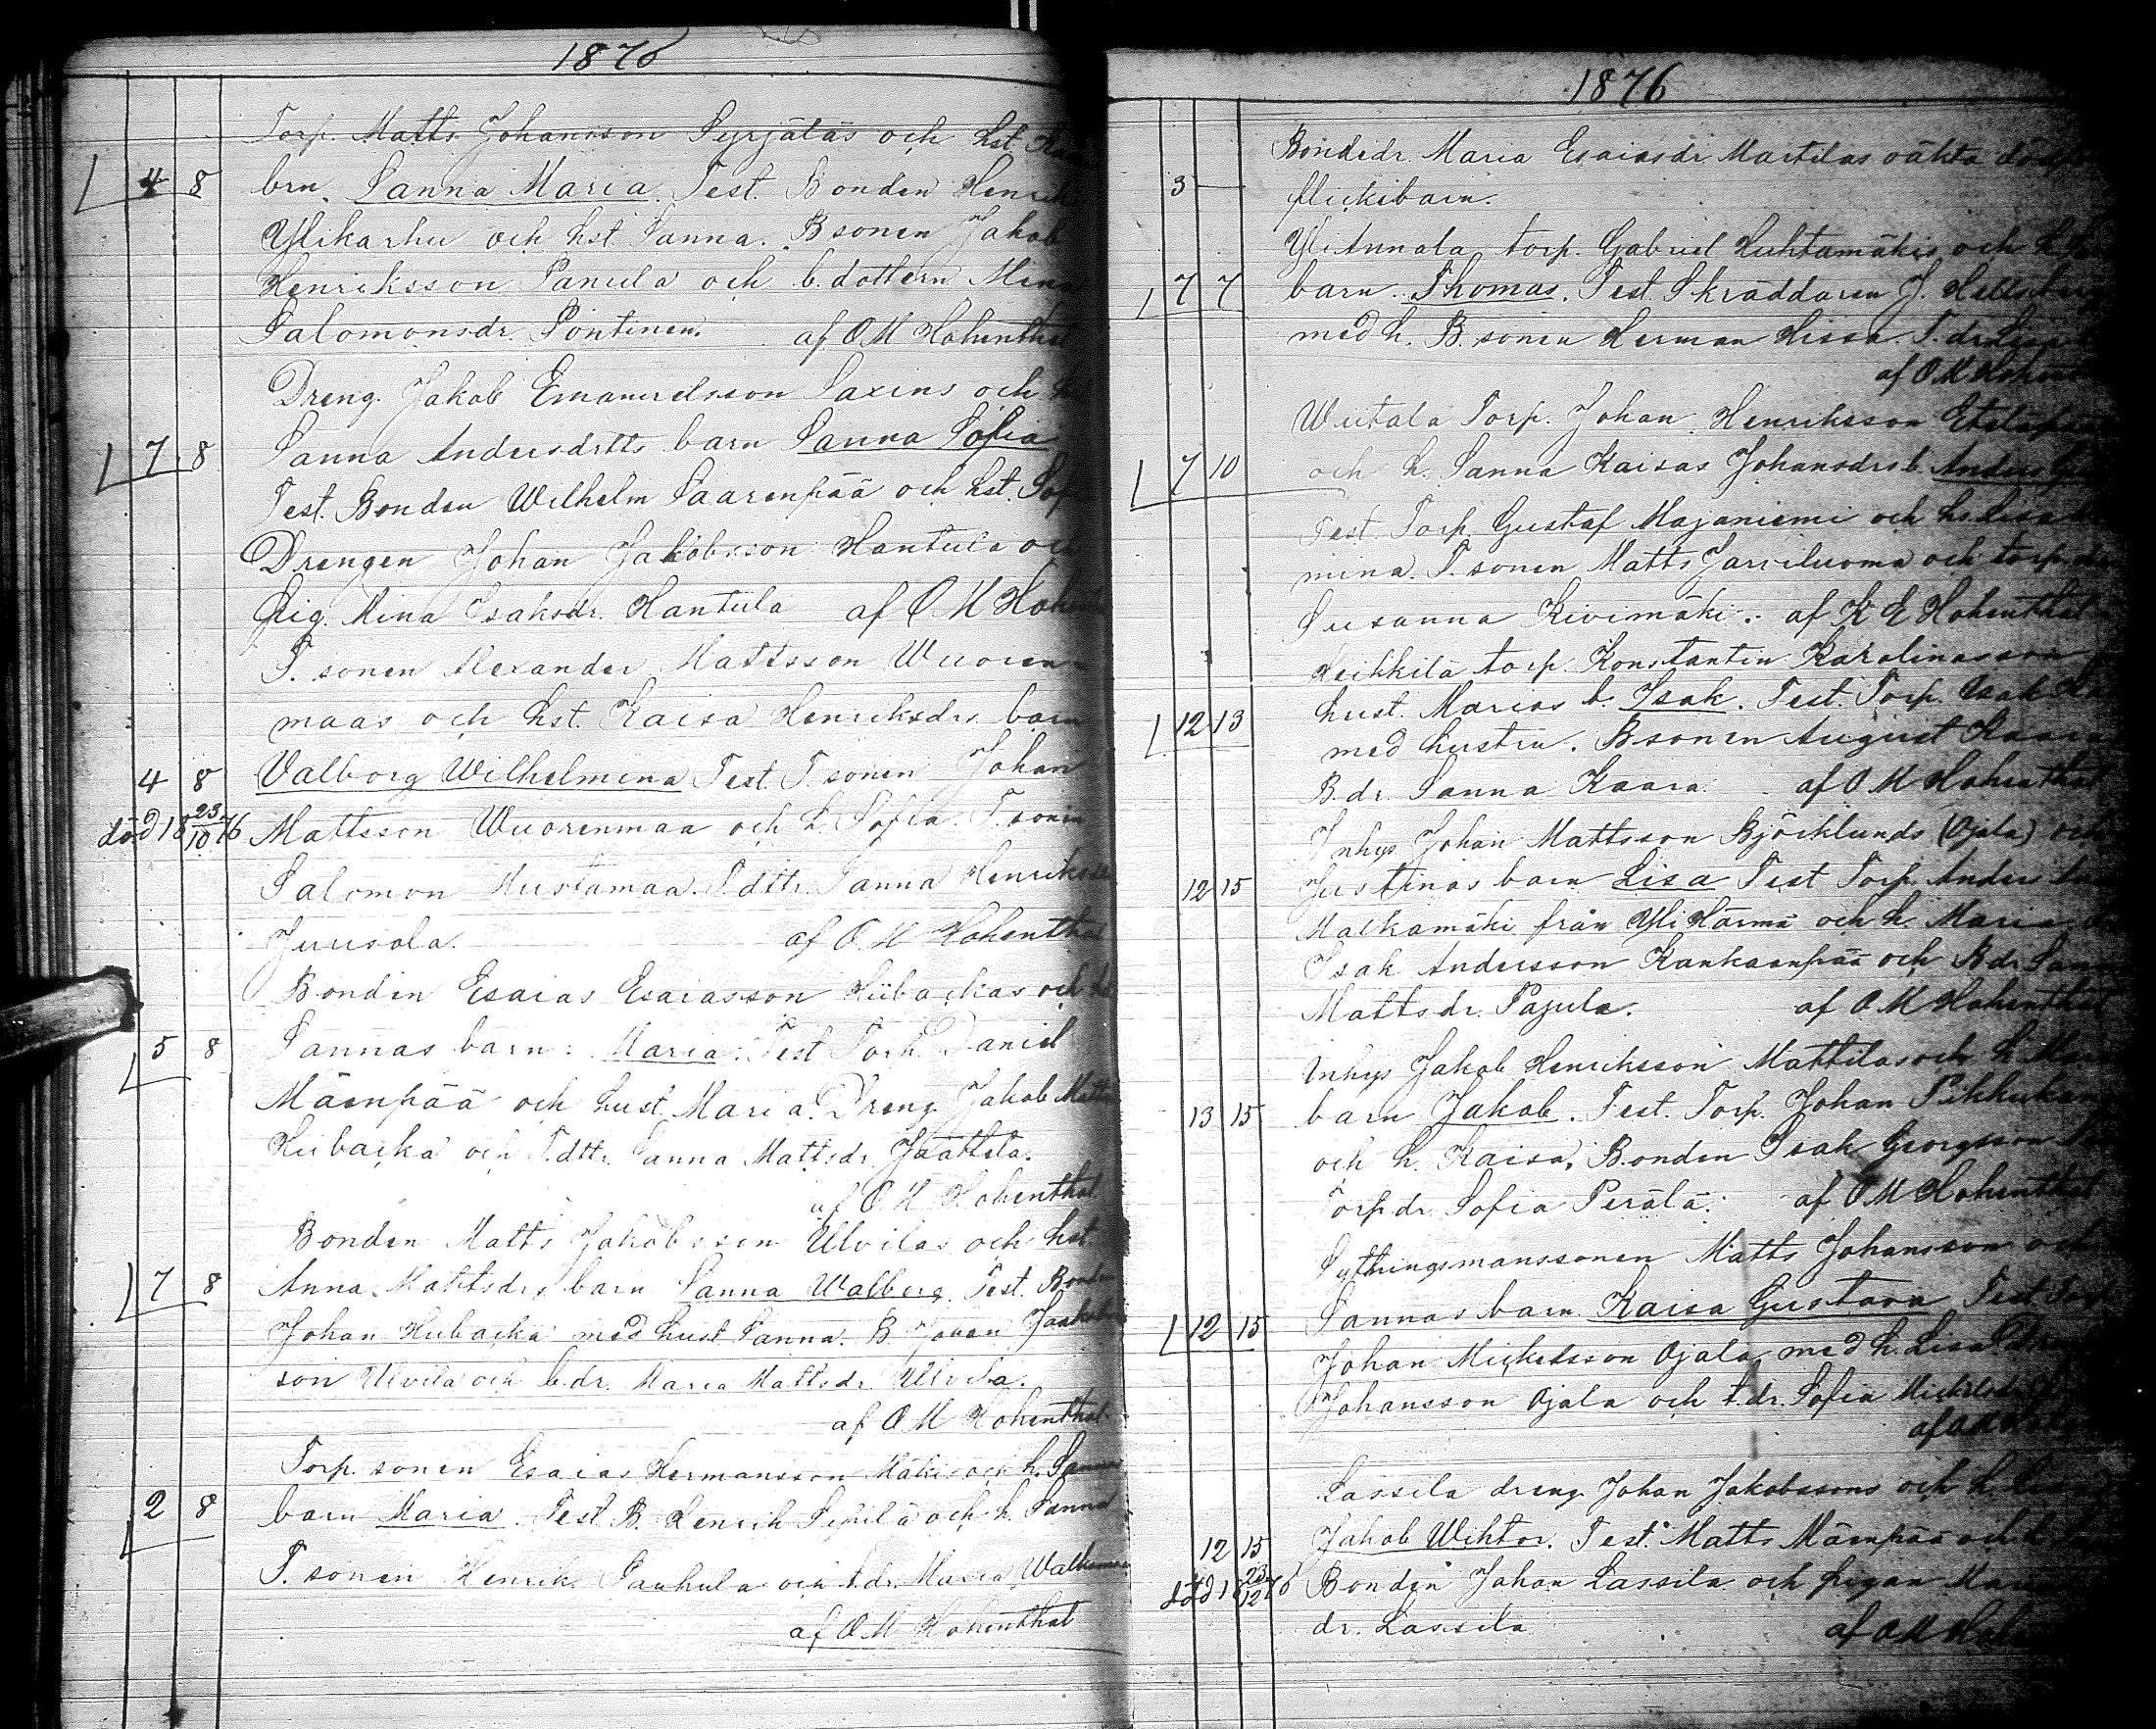 1876
Torp. Matts Johansson Syrjäläs och hst. Kai
4 8 brn. Sanna Maria. Test. Bonden Henrik
Ylikarhu och hst Sanna. Bsonen Jakob
Henriksson Panula och b. dottern Mina
Salomonsdr. Pöntinen. af O M Hohenthal
Dreng. Jakob Emanuelsson Saxens och h
7 8 Sanna Andersdrtts barn Sanna Sofia
Test. Bonden Wilhelm Saarenpää och hst. Sof
Drengen Johan Jakobsson Hantula och
Pig. Mina Isaksdr. Hantula af O M Hohen
T. sonen Alexander Mattsson Wuoren-
maas och hst. Kaisa Henriksdrs barn
4 8 Valborg Wilhelmina Test. T. sonen Johan
död 18 23/10 76 Mattsson Wuorenmaa och h. Sofia. T. sonen
Salomon Mustamaa. T. dttr. Sanna Henriksdr
Juusola. af O M Hohenthal
Bonden Esaias Esaiasson Hiibackas och h
5 8 Sannas barn: Maria. Test Torp. Daniel
Mäenpää och hust. Maria. Dreng. Jakob Matts
Hiibacka och T.dttr. Sanna Mattsdr. Jäättelä.
af O M Hohenthal
Bonden Matts Jakobsson Ulvilas och hst
7 8 Anna Mattsdrs barn Sanna Walborg. Test. Bonden
Johan Hiibacka med hust Sanna. B Johan Jaakobs
son Ulvila och b.dr. Maria Mattsdr Ulvila.
af O M Hohenthal
Torp. sonen Esaias Hermansson Mäkis och h. Sannas
2 8 barn Maria. Test B. Henrik Sippilä och h. Sanna
T. sonen Henrik Panhula och t.dr. Maria Walkama
af O M Hohenthal
1876
Bondedr. Maria Esaiasdr Martilas oäkta död
3 — flickebarn.
Yli Annala torp. Gabriel Huhtamäkis och h
7 7 barn. Thomas. Test. Skräddaren J. Hellsber
med h. B. sonen Herman Hissa. T. dr Lisa
af O M Hohen
Wiitala Torp. Johan Henriksson Eteläpä
7 10 och h. Sanna Kaisas Johansdrs b. Anders
Test. Torp. Gustaf Majaniemi och h. Lisa
mina. T. sonen Matts Jarviluoma och torp. dr
Susanna Kivimäki. af K E Hohenthal
Heikkilä torp. Konstantin Karolinasson
12 13 hust. Marias b. Isak. Test. Torp. Isak
med hustru. Bsonen August Kaara
B. dr. Sanna Kaara. af O M Hohenthal
Inhys Johan Mattsson Björklunds (Ojala) och
12 15 Justinas barn Lisa Test Torp. Anders
Malkamäki från Yli Härmä och h. Maria. B
Isak Andersson Kankaanpää och B dr San
Mattsdr. Pajula. af O M Hohenthal
Inhys Jakob Henriksson Mattilas och h. Mar
13 15 barn Jakob. Test. Torp. Johan Pikkukan
och h. Kaisa, Bonden Isak Georgsson
Torp dr Sofia Perälä. af O M Hohenthal
Sythingsmanssonen Matts Johansson och
12 15 Sannas barn Kaisa Gustava Test. Torp
Johan Mickelsson Ojala med h. Lisa D
Johansson Ojala och t. dr. Sofia Mickelsdr
af O M Hohen
Lassila dreng Johan Jakobssons och h.
12 15 Jakob Wiktor. Test. Matts Mäenpää och
död 18 23/12 76 Bonden Johan Lassila och pigan Ma
dr. Lassila af O M Hohen